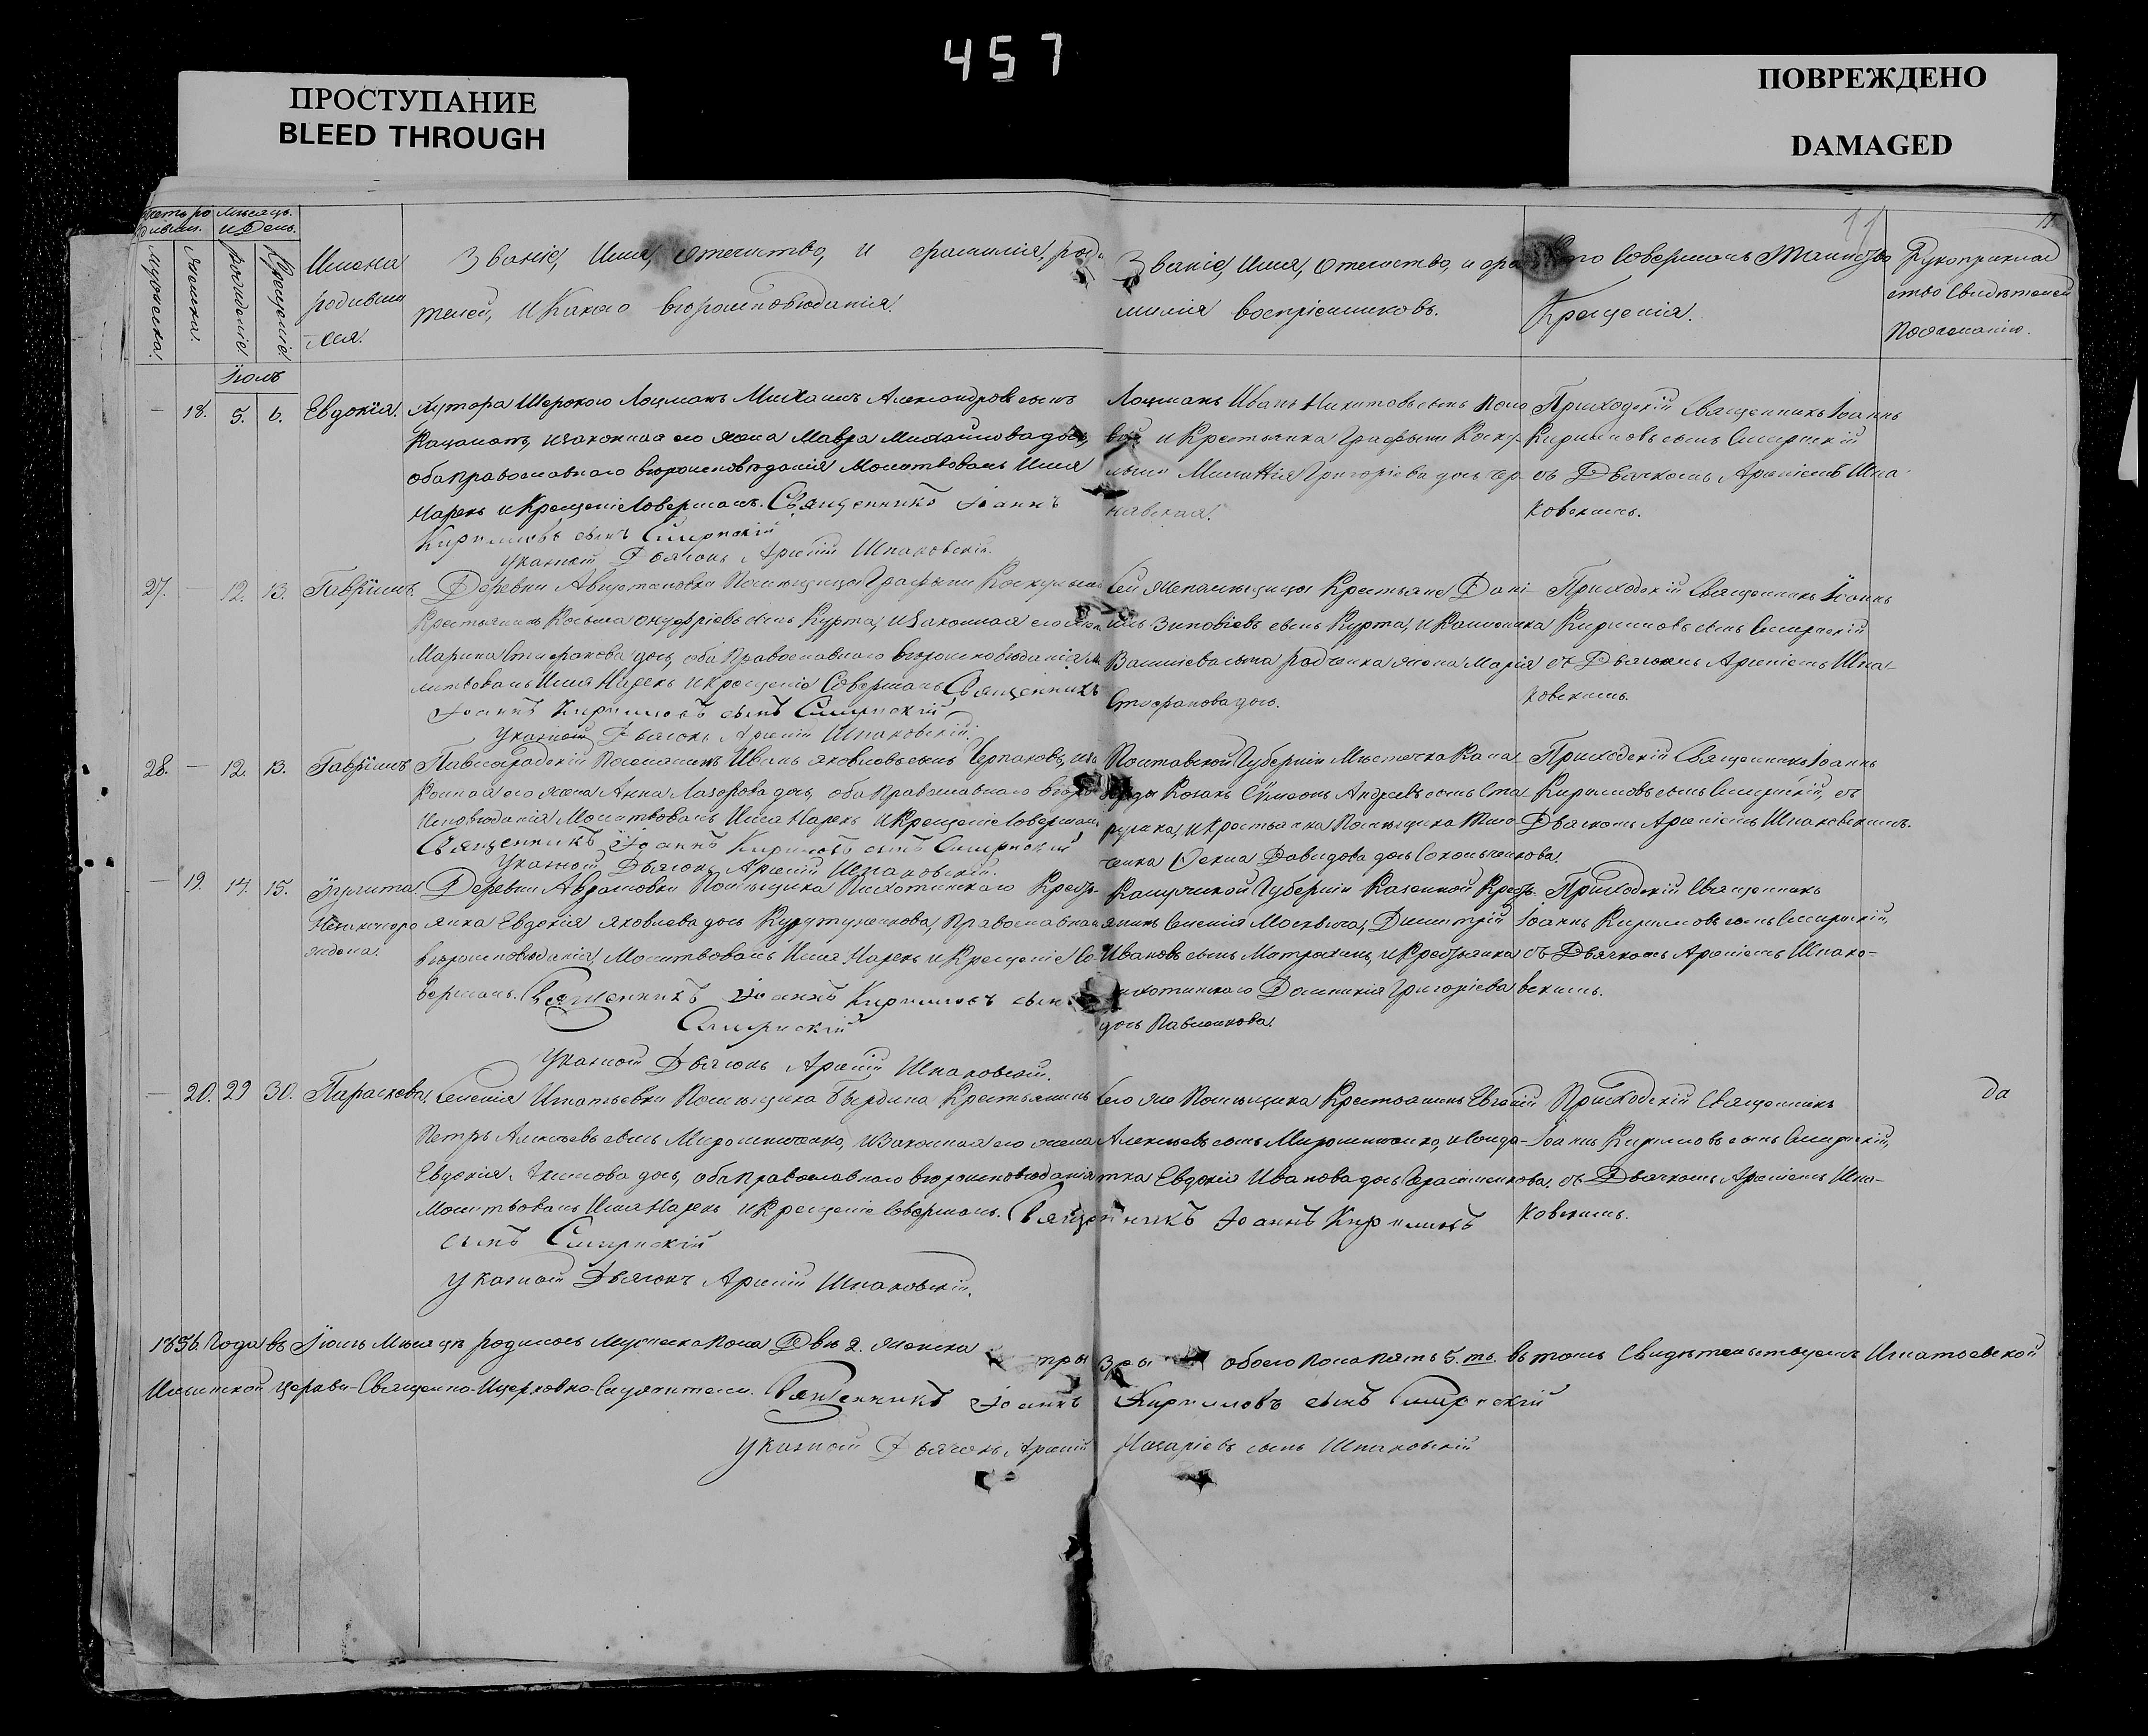 457
ПРОСТУПАНИЕ
BLEED THROUGH
ПОВРЕЖДЕНО
DAMAGED
11
Мѣсяцъ
и День.
Имена
родивши
-хся.
Званіе, Имя, Отечество, и фамилія, роди
телей, и Какого вѣроисповѣданія.
Званіе, Имя, Отечество, и фа
милія воспріемниковъ.
Кто Совершалъ Таинство
Крещенія.
Рукоприклад
ство Свидѣтелей
По желанію.
Мужеска.
Женска.
Рожденіе.
Крещеніе.
Іюль
— 18. 5. 6. Евдокія.
Хутора Широкого Лоцманъ Михаилъ Александровъ сынъ
и законная его жена Мавра Михайлова дочь,
оба православнаго вѣроисповѣданія Молитвовалъ Имя
Нарекъ и Крещеніе Совершалъ. Священникъ Іоаннъ
Кирилловъ сынъ Смирнскій
Указной Дьячокъ Арсеній Шпаковскій.
Лоцманъ Иванъ Никитовъ сынъ
и Крестьянка Графыни
Григоріева дочь Чер-
нявская.
Приходскій Священникъ Іоаннъ
Кирилловъ сынъ Смирнскій
съ Дьячкомъ Арсеніемъ Шпа-
ковскимъ.
27. — 12. 13. Гавріилъ.
Деревни Августиновки Помѣщицы Графыни
Крестьянинъ Косьма Онуфріевъ сынъ Курта, и Законная его жена
Марина Стефанова дочь, оба Православнаго вѣроисповѣданія Мо
литвовалъ Имя Нарекъ и крещеніе Совершалъ Священникъ
Іоаннъ Кирилловъ сынъ Смирнскій
Указной Дьячокъ Арсеній Шпаковскій.
Сей же помѣщицы Крестьяне Дані-
илъ Зиновіевъ сынъ Курта, и
жена Марія
Стефанова дочь.
Приходскій Священникъ Іоаннъ
Кирилловъ сынъ Смирнскій
съ Дьячкомъ Арсеніемъ Шпа-
ковскимъ.
28. — 12. 13. Гавріилъ
Павлоградскій Поселянинъ Иванъ Яковлевъ сынъ Черпаковъ, и за
конная его жена Анна Лазорева дочь, оба православнаго вѣро
исповѣданія Молитвовалъ Имя Нарекъ и Крещеніе Совершалъ
Священникъ Іоаннъ Кирилловъ сынъ Смирнскій
Указной Дьячокъ Арсеній Шпаковскій.
Полтавской Губерніи Мѣстечка
Козакъ Сѵмеонъ Андреевъ сынъ Ста
и крестьянка Помѣщика
Давидова дочь
Приходскій Священникъ Іоаннъ
Кирилловъ сынъ Смирнскій, съ
Дьячкомъ Арсеніемъ Шпаковскимъ.
— 19. 14. 15. Іулита.
Незаконоро
ждена.
Деревни Авраmовки Помѣщика Пихотинскаго Кресть-
янка Евдокія Яковлева дочь Православнаго
вѣроисповѣданія Молитвовалъ Имя Нарекъ и Крещеніе Со-
вершалъ. Священникъ Іоаннъ Кирилловъ сынъ
Смирнскій
Указной Дьячокъ Арсеній Шпаковскій.
Калужской Губерніи Казенной Кресть-
янинъ Селенія Дмитрій
Ивановъ сынъ Митрохинъ, и Крестьянка
Пихотинскаго Домникія Григоріева
дочь Павленкова.
Приходскій Священникъ
Іоаннъ Кирилловъ сынъ Смирнскій,
съ Дьячкомъ Арсеніемъ Шпако-
вскимъ.
— 20. 29 30. Параскева.
Селенія Игнатьевки Помѣщика Бырдина Крестьянинъ
Петръ Алексѣевъ сынъ Мирошниченко, и Законная его жена
Евдокія Акимова дочь, оба православнаго вѣроисповѣданія
Молитвовалъ Имя Нарекъ и Крещеніе Совершалъ. Священникъ Іоаннъ Кирилловъ
сынъ Смирнскій
Указной Дьячокъ Арсеній Шпаковскій.
Сего же Помѣщика Крестьянинъ Евгеній
Алексѣевъ сынъ Мирошниченко, и Солда-
тка Евдокія Иванова дочь Герасименкова.
Приходскій Священникъ
Іоаннъ Кирилловъ сынъ Смирнскій,
съ Дьячкомъ Арсеніемъ Шпа-
ковскимъ.
да
1856. Года въ Іюлѣ Мѣсяцѣ родилось Мужеска пола Двѣ 2. женска три 3 обоего пола пять 5. ть. въ томъ Свидѣтельствуемъ Игнатьевской
Ильинской Церкви Священно-Церковно-Служители. Священникъ Іоаннъ Кирилловъ сынъ Смирнскій
Указной Дьячокъ Арсеній Макаріевъ сынъ Шпаковскій